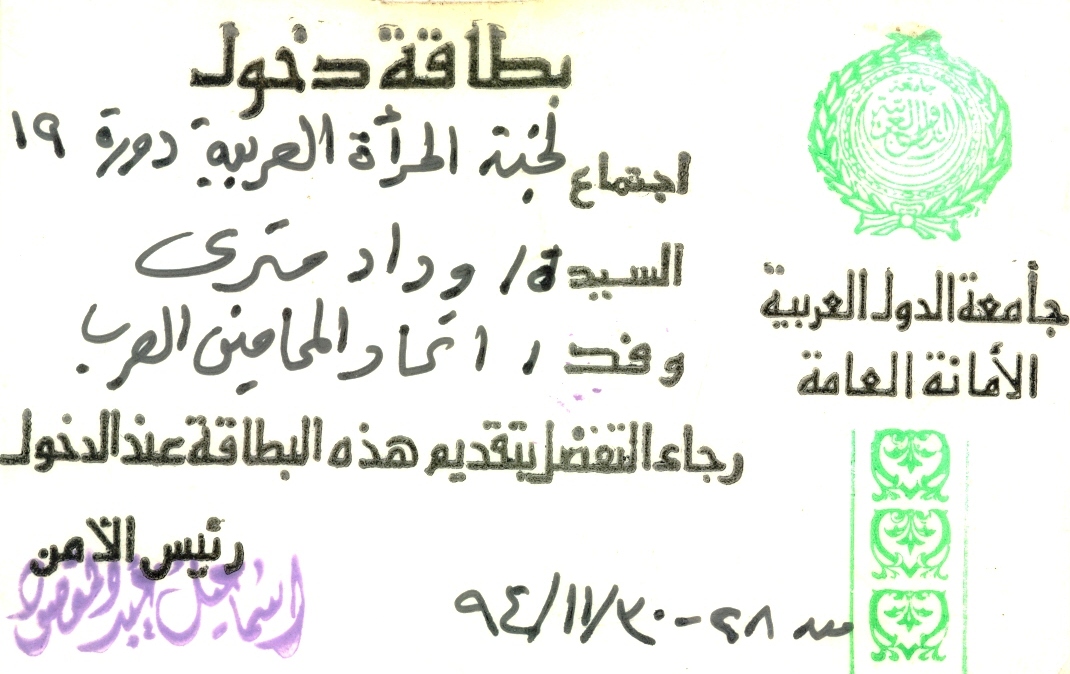 بطاقة دخول
اجتماع لجنة المرأة العربية دورة ١٩
السيدة/ وداد مترى
وفد/ اتحاد المحامين العرب
رجاء التفضل بتقديم هذه البطاقة عند الدخول
رئيس الأمن
اسماعيل عبد المقصود
من ٢٨-٣٠/١١/٩٤
جامعة الدول العربية
جامعة الدول العربية
الأمانة العامة